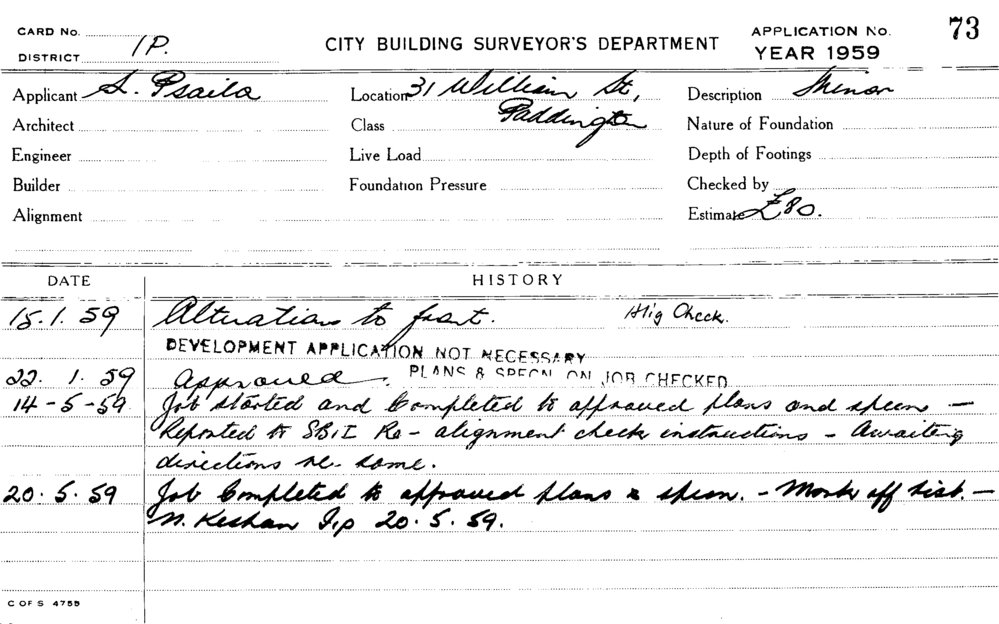 CARD No.
DISTRICT 1P.
CITY BUILDING SURVEYOR'S DEPARTMENT
APPLICATION No. 73
YEAR 1959
Applicant S. Psaila
Location 31 William St, Paddington
Description Minor
Architect
Class
Nature of Foundation
Engineer
Live Load
Depth of Footings
Builder
Foundation Pressure
Checked by
Alignment
Estimate £80.
DATE HISTORY
15.1.59 Alterations to front. Alig Check.
DEVELOPMENT APPLICATION NOT NECESSARY
22.1.59 Approved. PLANS & SPECN. ON JOB CHECKED
14-5-59 Job started and Completed to approved plans and specn —
Reported to SBI Re - alignment check instructions - Awaiting
directions re. same.
20.5.59 Job Completed to approved plans & specn. - Mark off list. —
Isp 20.5.59.
C OF S 4755